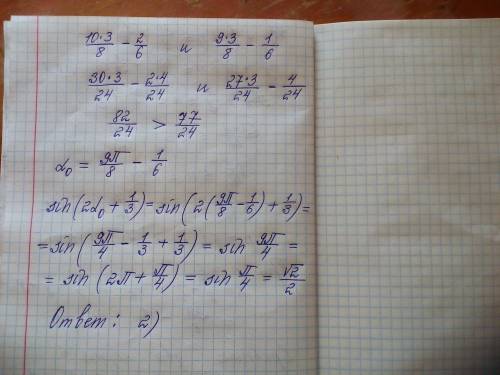 10·3/8 - 2/6 и 9·3/8 - 1/6
30·3/24 - 2·4/24 и 27·3/24 - 4/24
82/24 > 77/24
α₀ = 9π/8 - 1/6
sin(2α₀ + 1/3) = sin(2(9π/8 - 1/6) + 1/3) =
= sin(9π/4 - 1/3 + 1/3) = sin 9π/4 =
= sin(2π + π/4) = sin π/4 = √2/2
Ответ: 2)